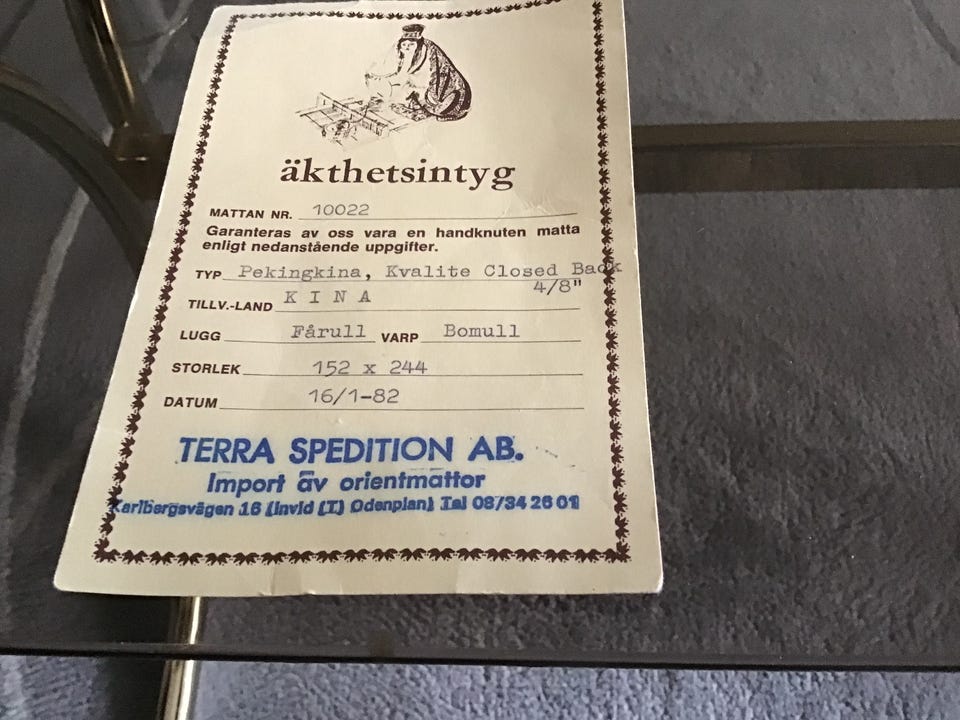 äkthetsintyg
MATTAN NR. 10022
Garanteras av oss vara en handknuten matta
enligt nedanstående uppgifter.
TYP Pekingkina, Kvalite Closed Back
4/8"
TILLV.-LAND K I N A
LUGG Fårull VARP Bomull
STORLEK 152 x 244
DATUM 16/1-82
TERRA SPEDITION AB.
Import av orientmattor
Karlbergsvägen 16 (Invid (T) Odenplan) Tel 08/34 26 01